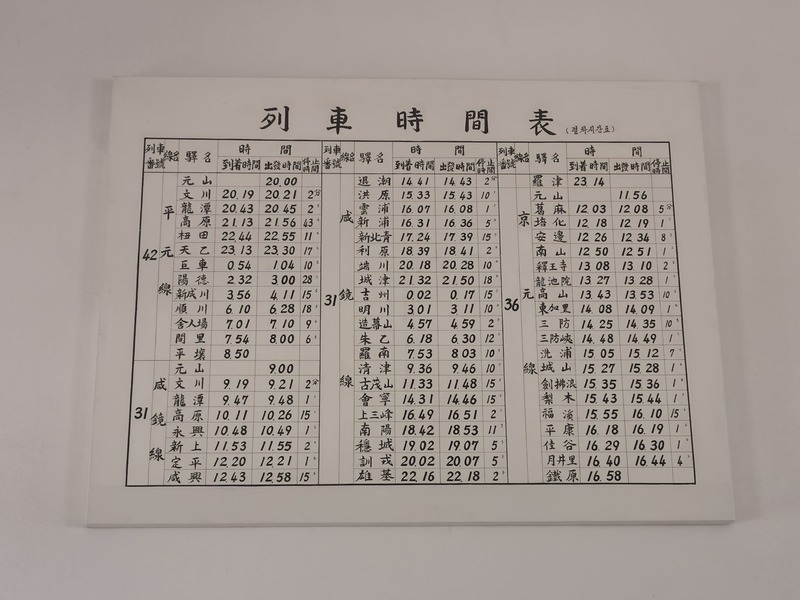 列車時間表 (렬차시간표)
列車番號 線名 驛名 時間 到着時間 出發時間 停止時間
42 平元線
元山 20.00
文川 20.19 20.21 2分
龍潭 20.43 20.45 2〃
高原 21.13 21.56 43〃
杻田 22.44 22.55 11〃
天乙 23.13 23.30 17〃
巨車 0.54 1.04 10〃
陽德 2.32 3.00 28〃
新成川 3.56 4.11 15〃
順川 6.10 6.28 18〃
舍人場 7.01 7.10 9〃
間里 7.54 8.00 6〃
平壤 8.50
31 咸鏡線
元山 9.00
文川 9.19 9.21 2分
龍潭 9.47 9.48 1〃
高原 10.11 10.26 15〃
永興 10.48 10.49 1〃
新上 11.53 11.55 2〃
定平 12.20 12.21 1〃
咸興 12.43 12.58 15〃
列車番號 線名 驛名 時間 到着時間 出發時間 停止時間
31 咸鏡線
退湖 14.41 14.43 2分
洪原 15.33 15.43 10〃
雲浦 16.07 16.08 1〃
新浦 16.31 16.36 5〃
新北青 17.24 17.39 15〃
利原 18.39 18.41 2〃
端川 20.18 20.28 10〃
城津 21.32 21.50 18〃
吉州 0.02 0.17 15〃
明川 3.01 3.11 10〃
造暮山 4.57 4.59 2〃
朱乙 6.18 6.30 12〃
羅南 7.53 8.03 10〃
清津 9.36 9.46 10〃
古茂山 11.33 11.48 15〃
會寧 14.31 14.46 15〃
上三峰 16.49 16.51 2〃
南陽 18.42 18.53 11〃
穩城 19.02 19.07 5〃
訓戎 20.02 20.07 5〃
雄基 22.16 22.18 2〃
列車番號 線名 驛名 時間 到着時間 出發時間 停時間
羅津 23.14
36 京元線
元山 11.56
葛麻 12.03 12.08 5分
培化 12.18 12.19 1〃
安邊 12.26 12.34 8〃
南山 12.50 12.51 1〃
釋王寺 13.08 13.10 2〃
龍池院 13.27 13.28 1〃
高山 13.43 13.53 10〃
東如里 14.08 14.09 1〃
三防 14.25 14.35 10〃
三防峽 14.48 14.49 1〃
洗浦 15.05 15.12 7〃
城山 15.27 15.28 1〃
劍拂浪 15.35 15.36 1〃
梨木 15.43 15.44 1〃
福溪 15.55 16.10 15〃
平康 16.18 16.19 1〃
佳谷 16.29 16.30 1〃
月井里 16.40 16.44 4〃
鐵原 16.58